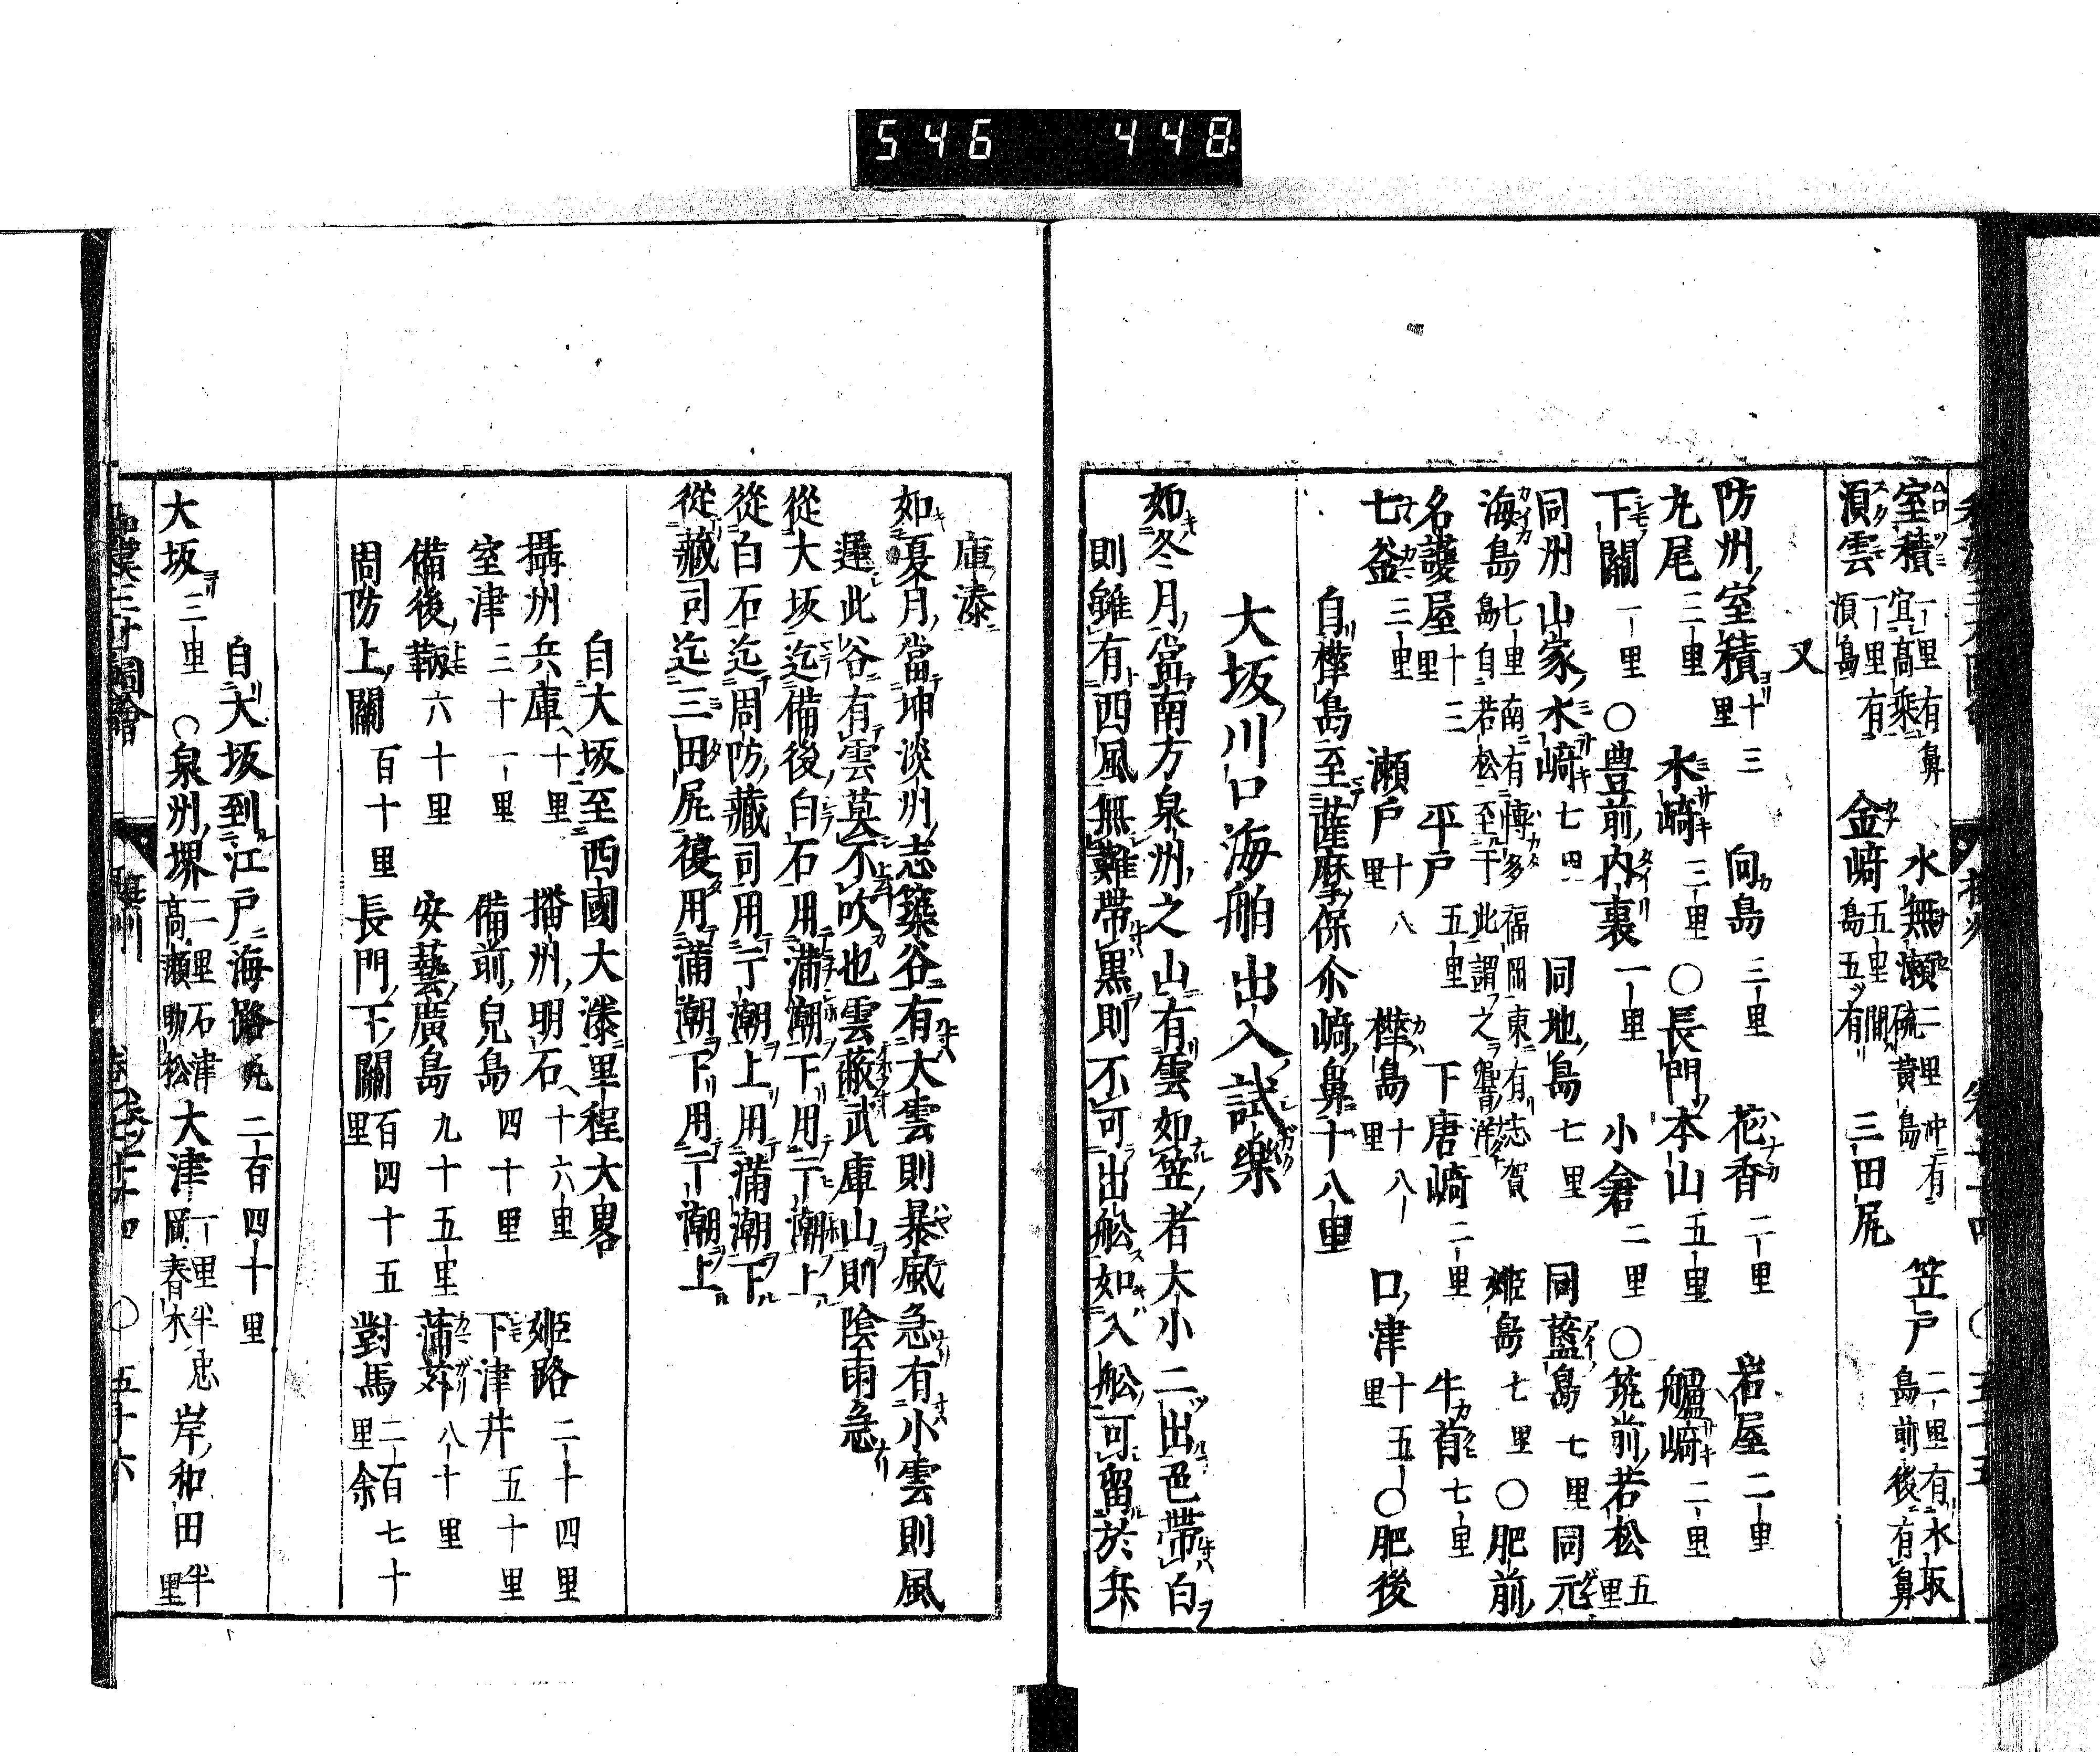 546 448
室積 一里有鼻宜高乗 水無瀬 二里沖有硫黄島 笠戸 二里有水取島前後有鼻
湏雲 一里有湏島 金﨑 五里間島五ツ有 三田尻
又
防州室積 十三里 向島 三里 花香 二里 岩屋 二里
丸尾 三里 水﨑 三里 ○長門本山 五里 艫﨑 二里
下關 一里 ○豊前内裏 一里 小倉 二里 ○筑前若松 五里
同州山家水﨑 七四 同地島 七里 同藍島 七里 同元
海島 七里南有博多福岡東有志賀島自若松至于此謂之響灘 姫島 七里 ○肥前
名護屋 十三里 平戸 五里 下唐﨑 二里 牛首 七里
七釜 三里 瀬戸 十八里 樺島 十八里 口津 十五里 ○肥後
自樺島至薩摩保介﨑鼻十八里
大坂川口海舶出入試樂
如冬月當南方泉州之山有雲如笠者大小二出色帶白
則雖有西風無難帶黒則不可出舩如入舩可留於兵
庫湊
如夏月當坤淡州志築谷有大雲則暴風急有小雲則風
遲此谷有雲莫不吹也雲蔽武庫山則陰雨急
從大坂迄備後白石用滿潮下用丁潮上
從白石迄周防藏司用丁潮上用滿潮下
從藏司迄三田尻復用滿潮下用丁潮上
自大坂至西國大湊里程大畧
攝州兵庫 十里 播州明石 十六里 姫路 二十四里
室津 三十一里 備前兒島 四十里 下津井 五十里
備後鞆 六十里 安藝廣島 九十五里 蒲苅 八十里
周防上關 百十里 長門下關 百四十五里 對馬 二百七十里余
自大坂到江戸海路 凡二百四十里
大坂 三里 ○泉州堺 二里石津高瀬助松 大津 一里半忠岡春木 岸和田 半里
和漢三才圖會 攝州 卷七十四 ○ 五十六